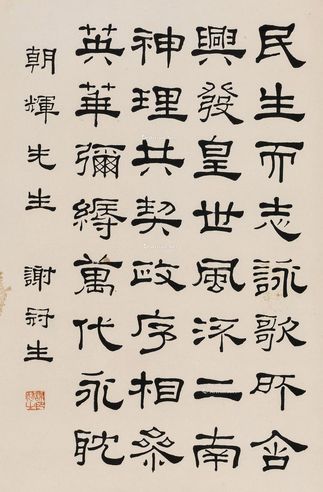 民生而志詠歌所含
興發皇世風流二南
神理共契政序相參
英華彌縟萬代永耽
朝輝先生 謝冠生